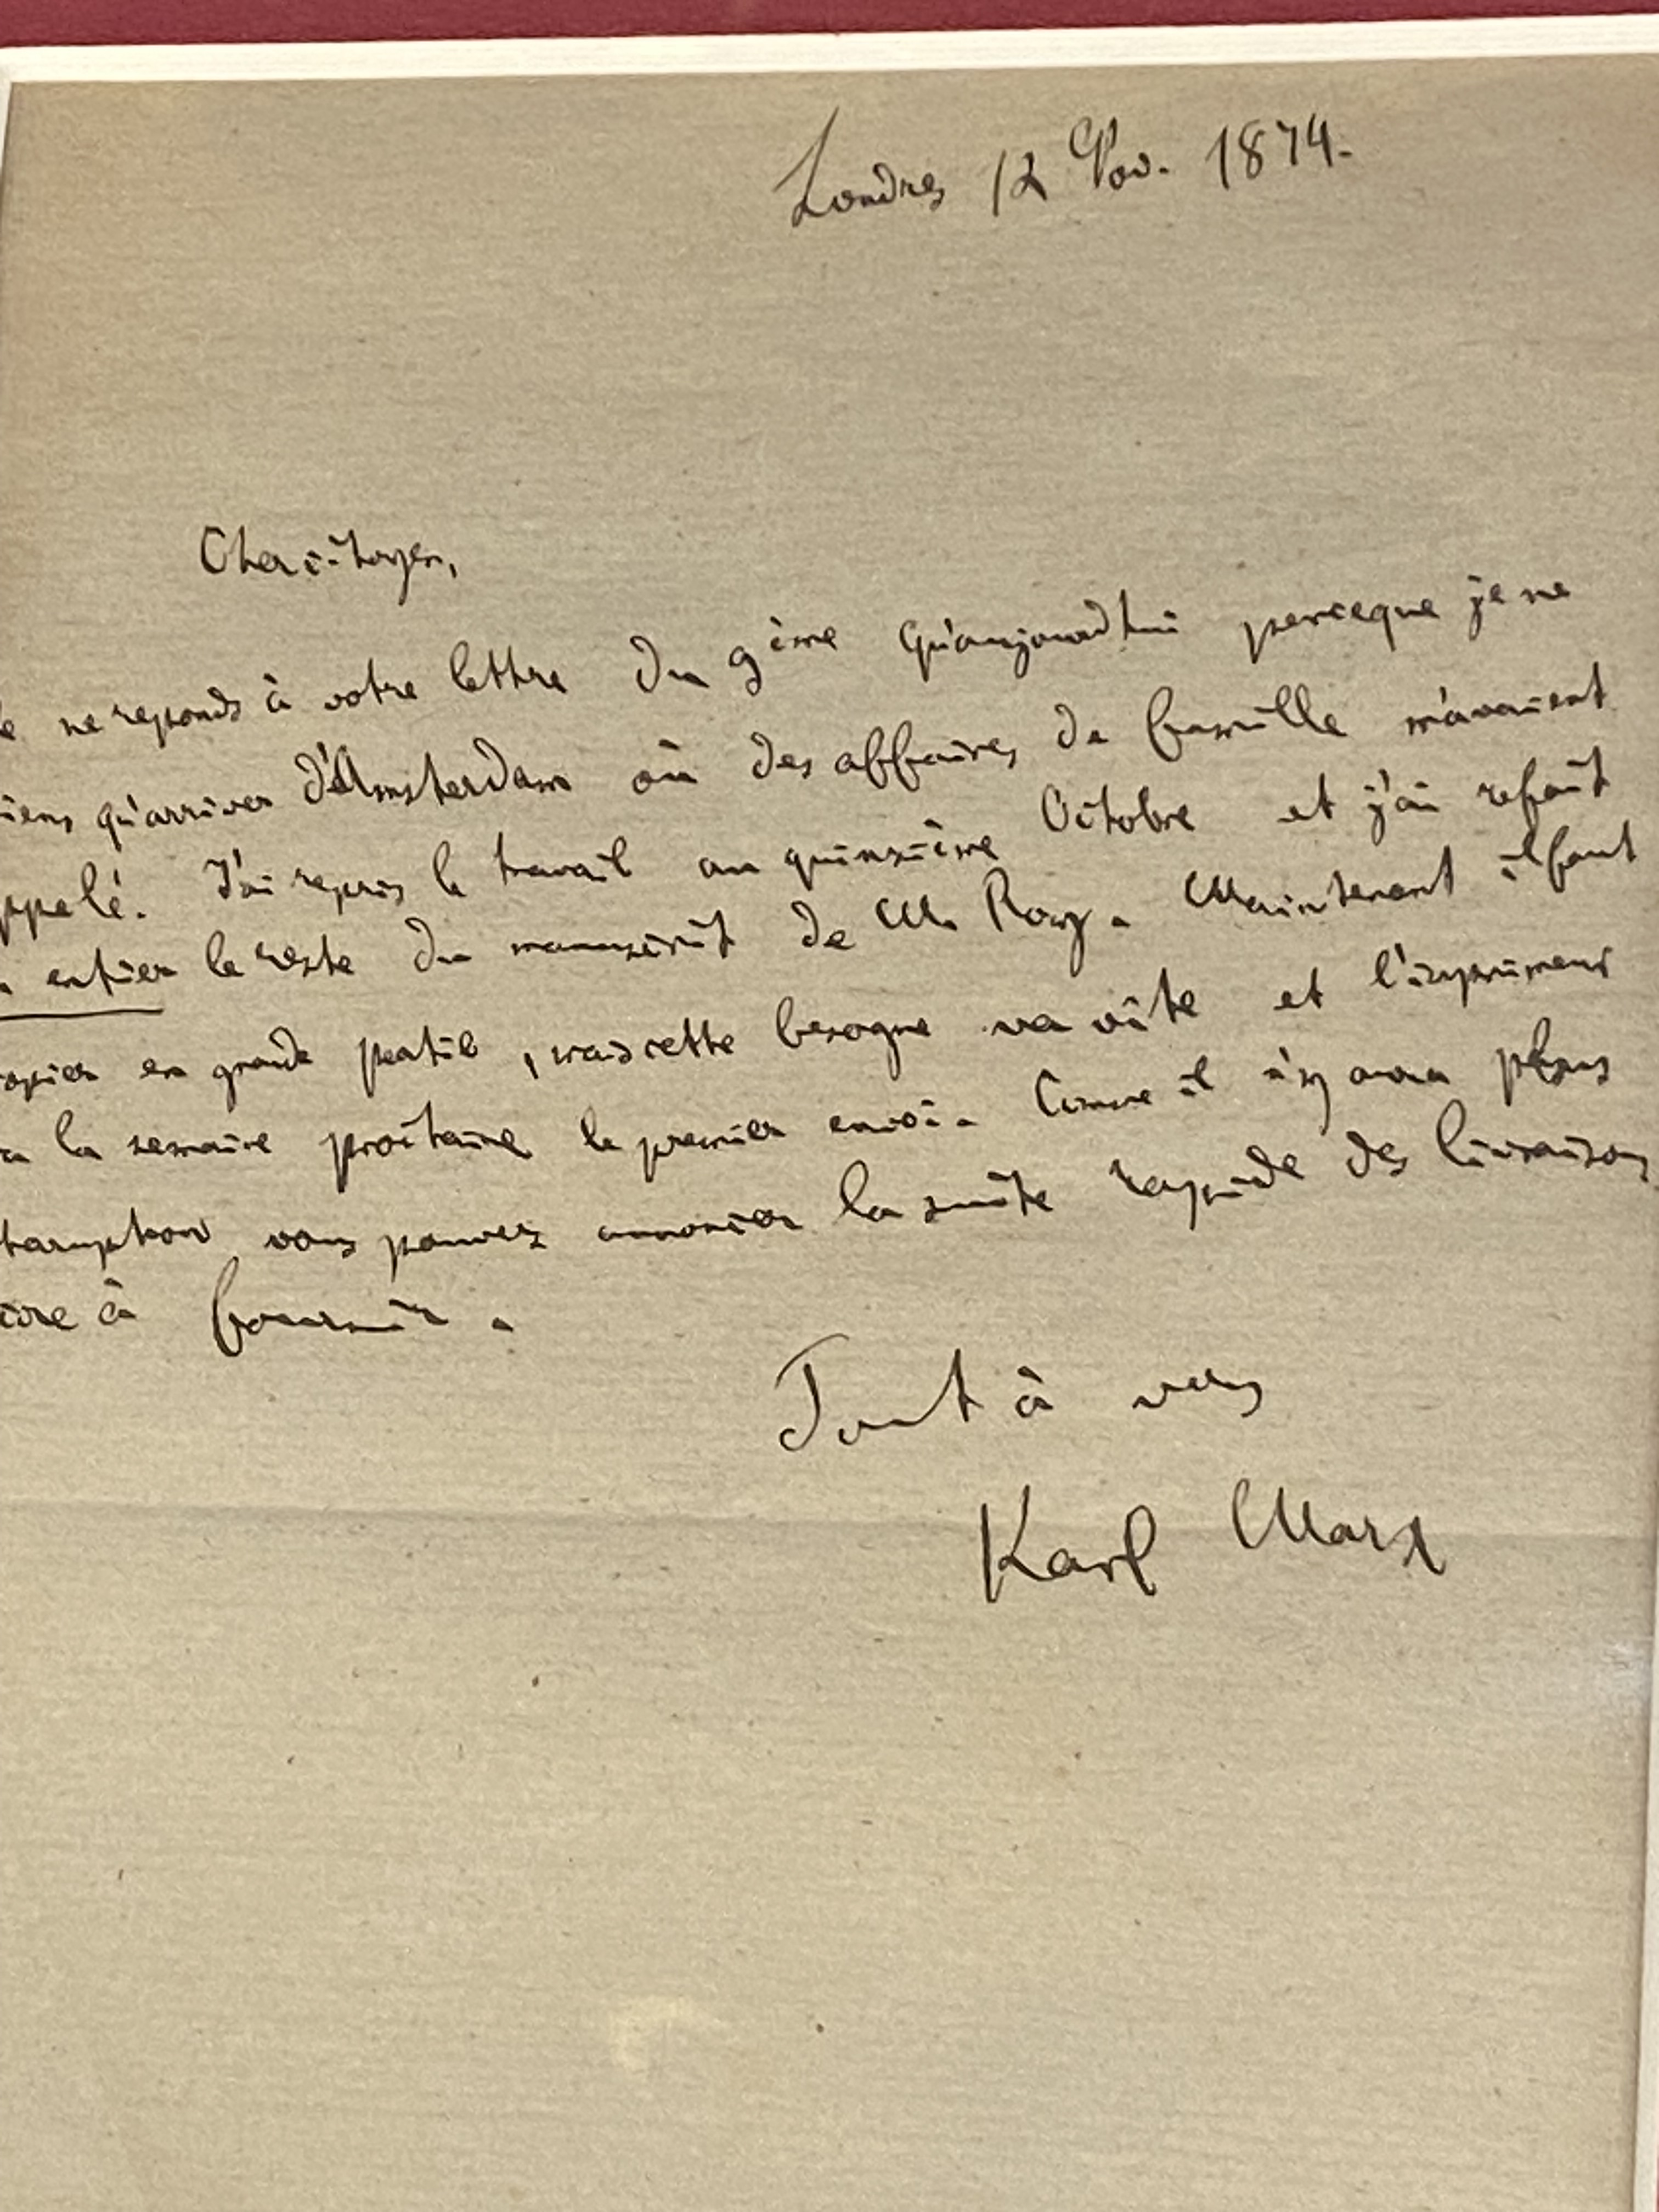 Londres 12 Nov. 1874.
Cher citoyen,
ne reponds à votre lettre du 9ème qu'aujourdhui parceque je ne
iens qu'arriver d'Amsterdam où des affaires de famille m'avaient
ppelé. J'ai repris le travail au quinzième Octobre et j'ai refait
entier le reste du manuscrit de M. Roy. Maintenant il faut
opier en grande partie, mais cette besogne va vite et l'imprimeur
a la semaine prochaine le premier envoi. Comme il n'y aura plus
terruption vous pouvez annoncer la suite rapide des livraisons
à fournir.
Tout à vous
Karl Marx